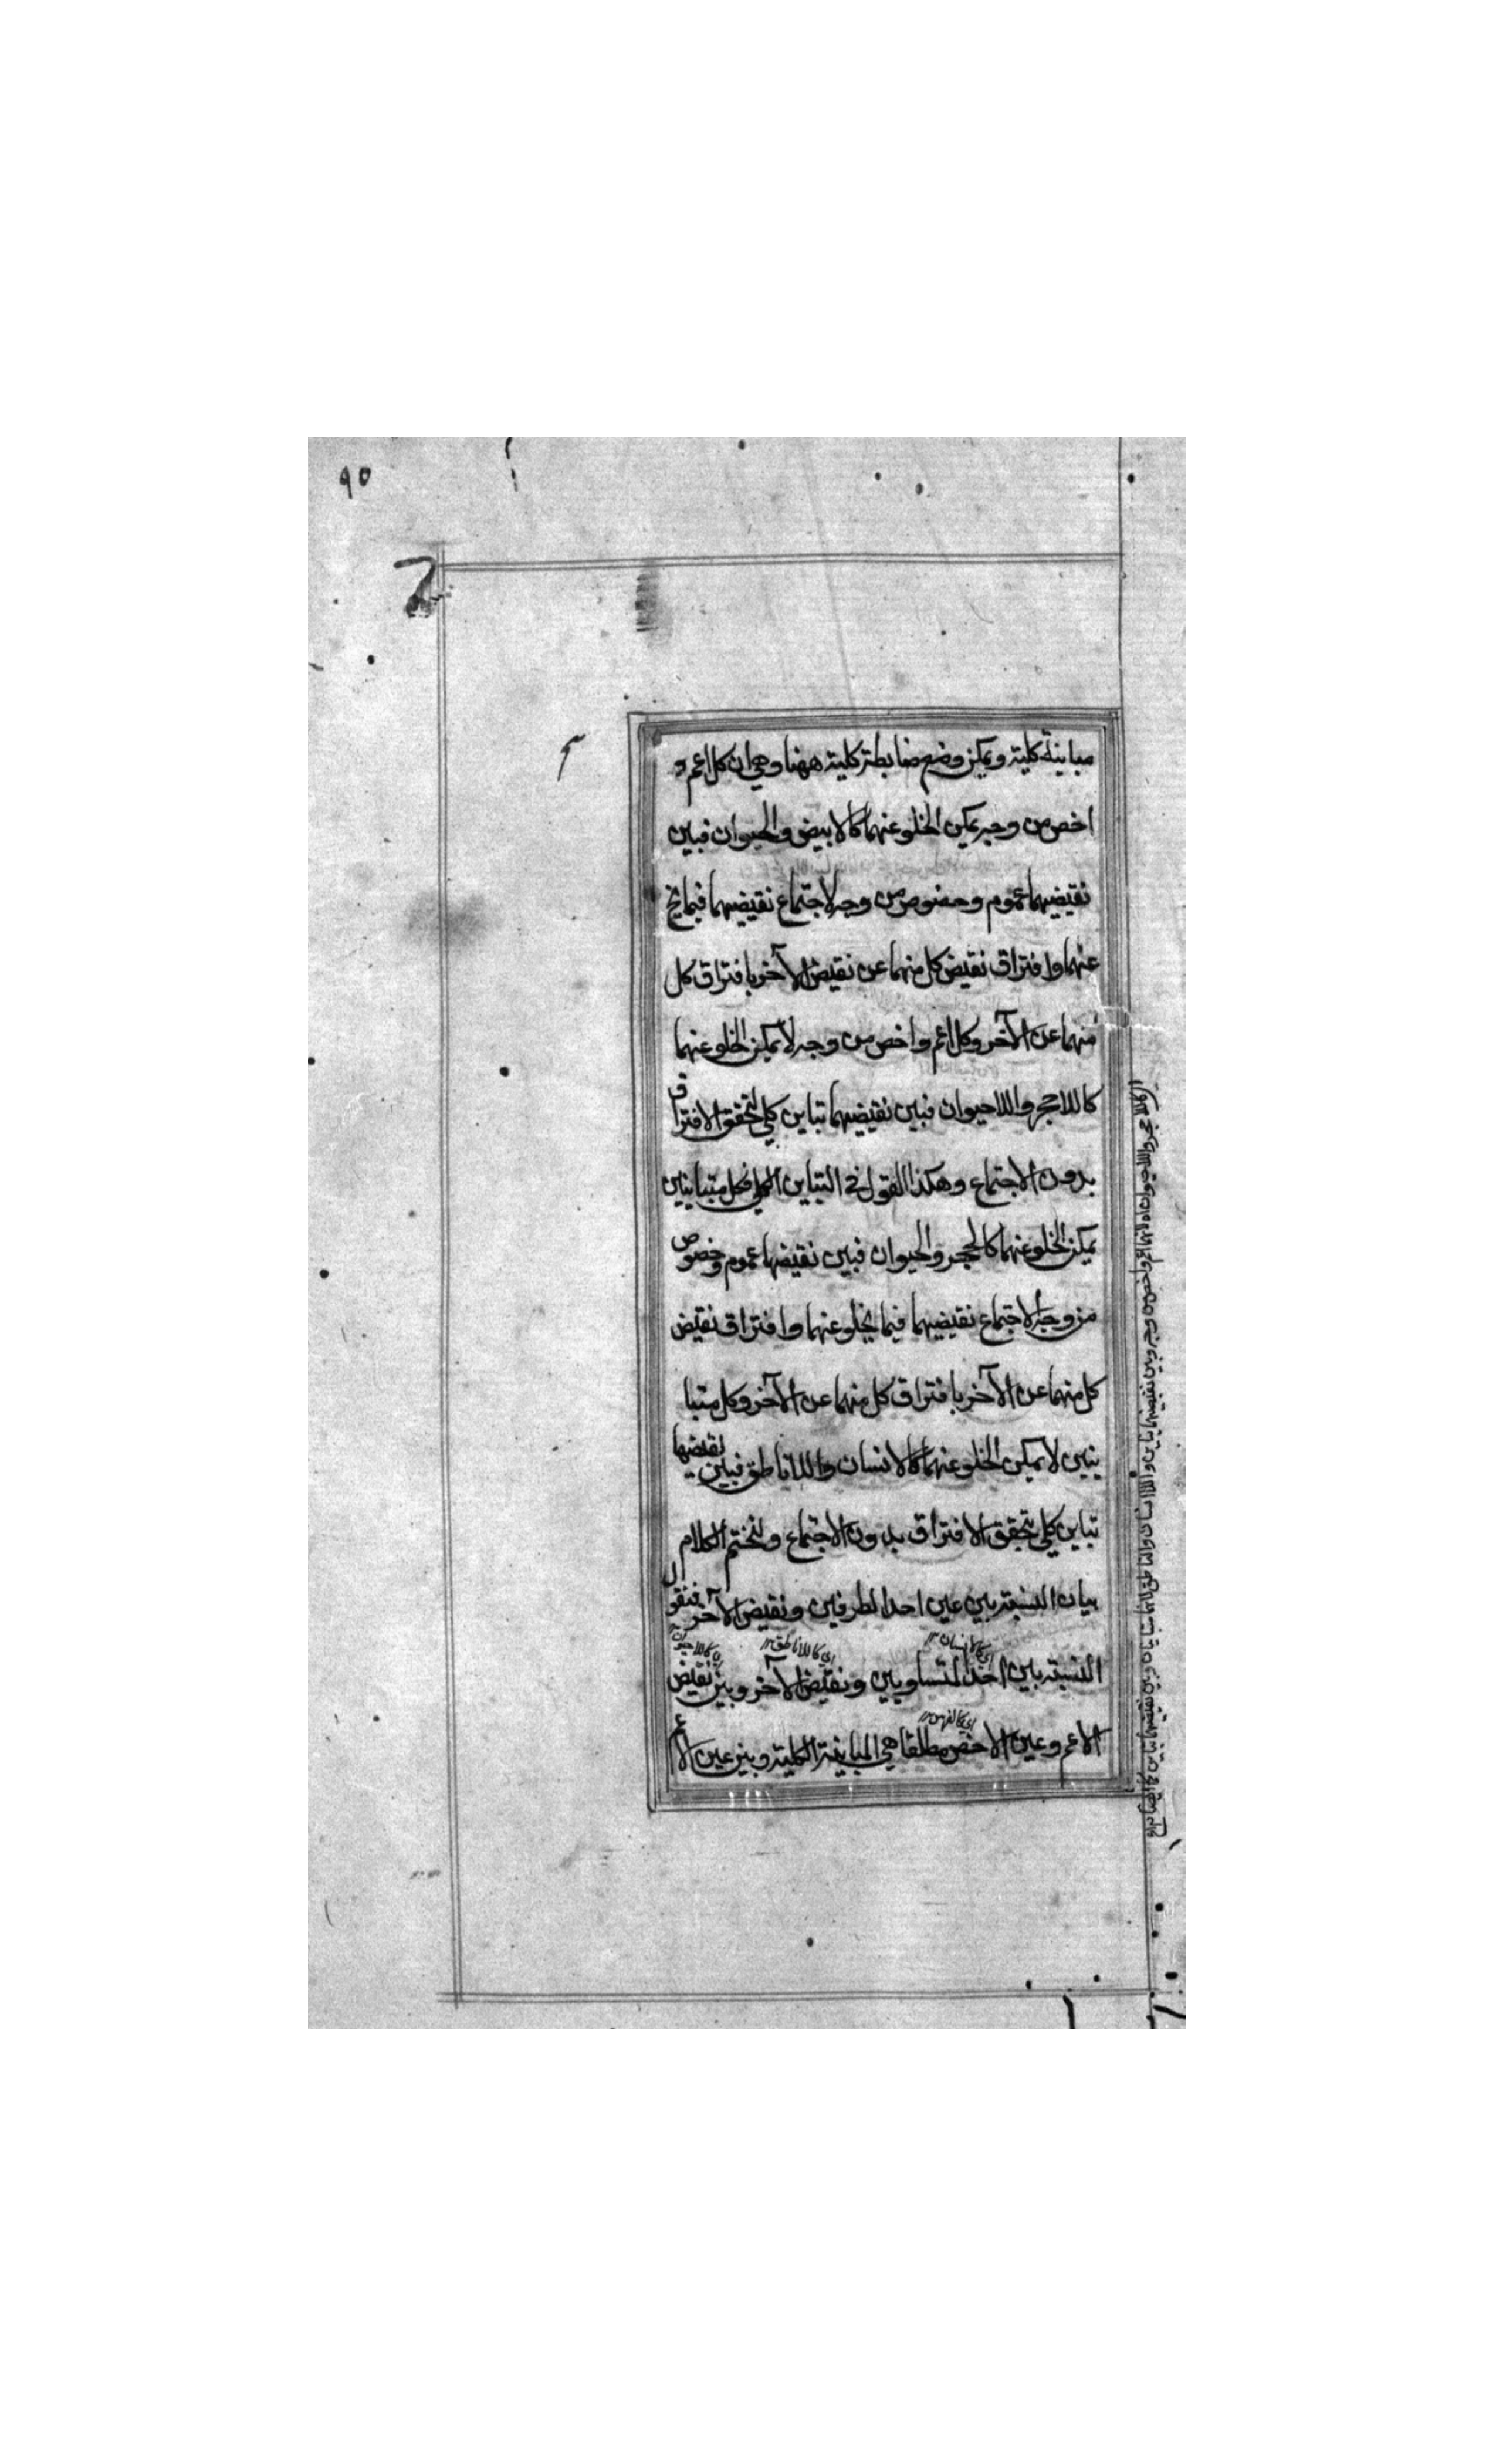 ٩٥
مباينة كلية ويمكن وضع ضابطة كلية ههنا وهي ان كل اعم و
اخص من وجه يمكن الخلو عنهما كالابيض والحيوان فبين
نقيضيهما عموم وخصوص من وجه لاجتماع نقيضيهما فيما يخ
عنهما وافتراق نقيض كل منهما عن نقيض الآخر بافتراق كل
منهما عن الآخر وكل اعم واخص من وجه لا يمكن الخلو عنهما
كاللاحجر واللاحيوان فبين نقيضيهما تباين كلي لتحقق الافتراق
بدون الاجتماع وهكذا القول في التباين الكلي فكل متباينين
يمكن الخلو عنهما كالحجر والحيوان فبين نقيضهما عموم وخصوص
من وجه لاجتماع نقيضيهما فيما يخلو عنهما وافتراق نقيض
كل منهما عن الآخر بافتراق كل منهما عن الآخر وكل متبا
ينين لا يمكن الخلو عنهما كالانسان واللاناطق فبين نقيضيهما
تباين كلي لتحقق الافتراق بدون الاجتماع ولنختم الكلام
بيان النسبة بين عين احد الطرفين ونقيض الآخر فنقول
اي كالانسان اي كاللاناطق اي كاللاحيوان
النسبة بين احد المتساويين ونقيض الآخر وبين نقيض
اي كالفرس
الاعم وعين الاخص مطلقا هي المباينة الكلية وبين عين الاعم